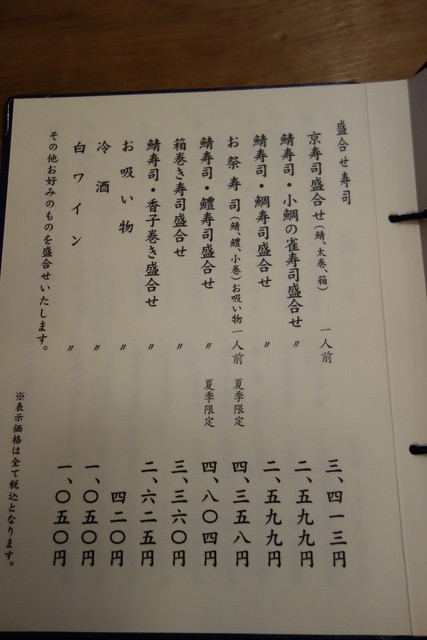 盛合せ寿司
京寿司盛合せ（鯖、太巻、箱） 一人前 三、四一三円
鯖寿司・小鯛の雀寿司盛合せ 〃 二、五九九円
鯖寿司・鯛寿司盛合せ 〃 二、五九九円
お祭寿司（鯖、鱧、小巻）お吸い物 一人前 夏季限定 四、三五八円
鯖寿司・鱧寿司盛合せ 〃 夏季限定 四、八〇四円
箱巻き寿司盛合せ 〃 三、三六〇円
鯖寿司・香子巻き盛合せ 〃 二、六二五円
お吸い物 〃 四二〇円
冷酒 〃 一、〇五〇円
白ワイン 〃 一、〇五〇円
その他お好みのものを盛合せいたします。
※表示価格は全て税込となります。